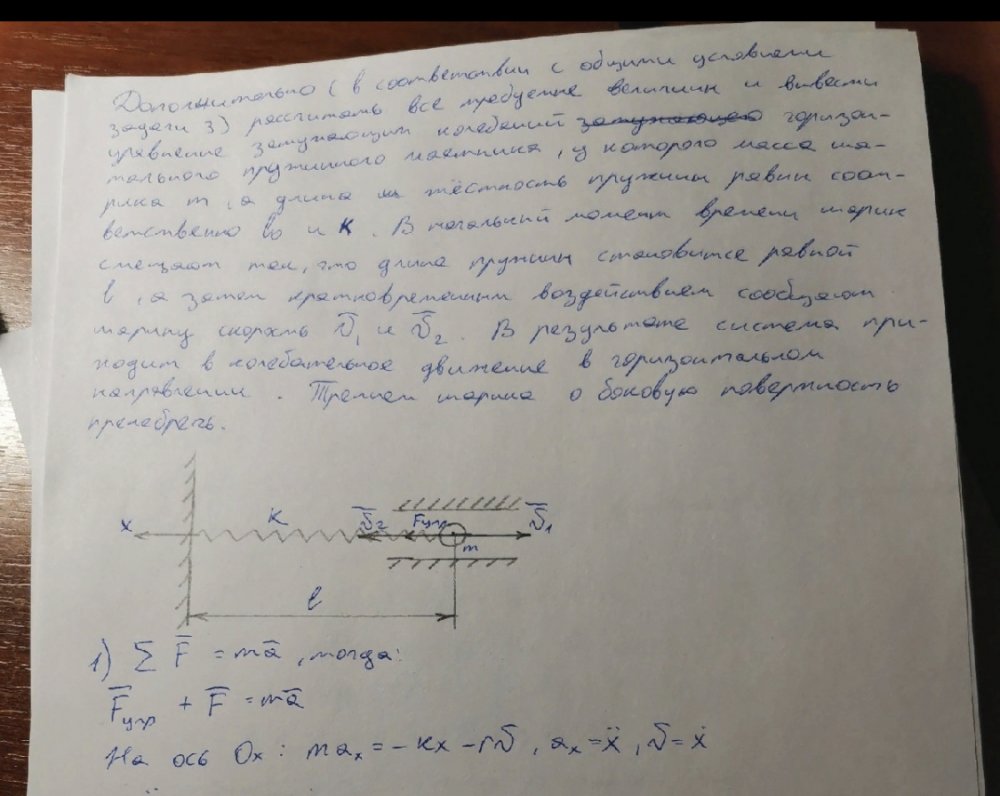 Дополнительно (в соответствии с общими условиями
задачи 3) рассчитать все требуемые величины и вывести
уравнение затухающих колебаний затухающего горизон-
тального пружинного маятника, у которого масса ша-
рика m, а длина и жёсткость пружины равны соот-
ветственно l₀ и K. В начальный момент времени шарик
смещают так, что длина пружины становится равной
l, а затем кратковременным воздействием сообщают
шарику скорость v̄₁ и v̄₂. В результате система при-
ходит в колебательное движение в горизонтальном
направлении. Трением шарика о боковую поверхность
пренебречь.
x K v̄₂ Fупр m v̄₁
l
1) Σ F̄ = mā, тогда:
F̄упр + F̄ = mā
На ось Ox: maₓ = - kx - rv, aₓ = ẍ, v = ẋ